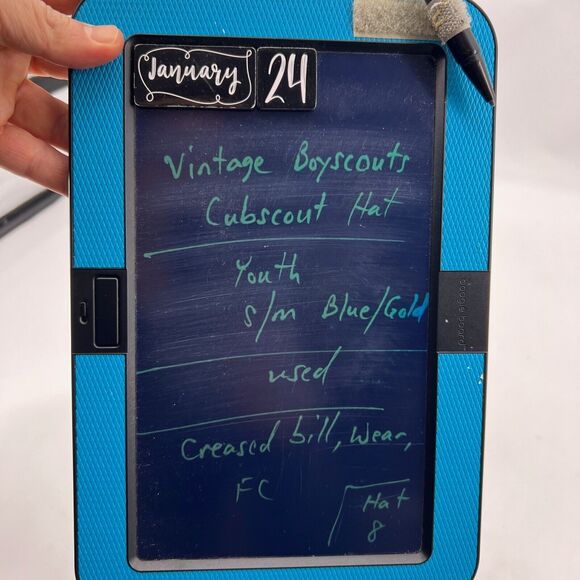 January 24
Vintage Boyscouts
Cubscout Hat
Youth
s/m Blue/Gold
used
Creased bill, Wear,
FC
Hat
8
boogie board